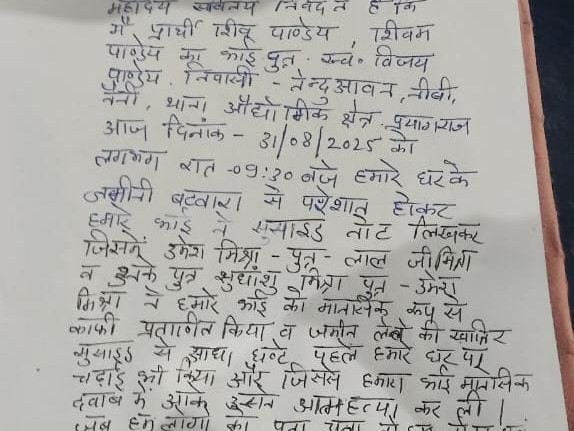 महोदय सविनय निवेदन है कि
मैं प्रार्थी शिबू पाण्डेय, शिवम
पाण्डेय का भाई पुत्र स्व० विजय
पाण्डेय निवासी - तेन्दुआवन, नीबी,
नैनी, थाना औद्योगिक क्षेत्र प्रयागराज
आज दिनांक - 31/08/2025 को
लगभग रात -09:30 बजे हमारे घर के
जमीनी बटवारा से परेशान होकर
हमारे भाई ने सुसाइड नोट लिखकर
जिसमें उमेश मिश्रा - पुत्र - लाल जी मिश्रा
व उनके पुत्र सुधांशु मिश्रा पुत्र - उमेश
मिश्रा ने हमारे भाई को मानसिक रूप से
काफी प्रताणित किया व जमीन लेने की खातिर
सुसाइड से आधा घण्टे पहले हमारे घर पर
चढाई भी किया और जिससे हमारा भाई मानसिक
दबाव में आकर उसने आत्महत्या कर ली।
जब हम लोगों को पता चला